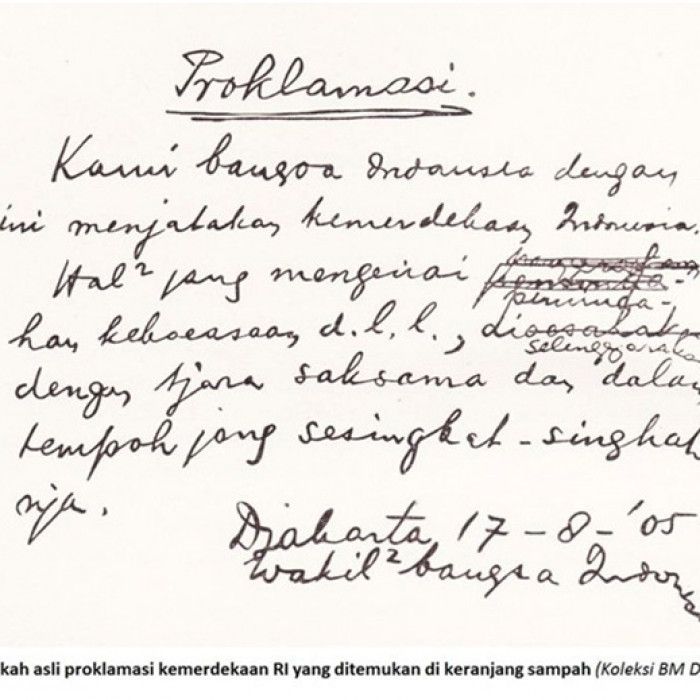 Proklamasi.
Kami bangsa Indonesia dengan
ini menjatakan kemerdekaan Indonesia.
Hal² jang mengenai
peminda-
han kekoeasaan d.l.l., dioesahaka
selenggaraka
dengan tjara saksama dan dalam
tempoh jang sesingkat-singkat
nja.
Djakarta 17 - 8 - '05
Wakil² bangsa Indones
kah asli proklamasi kemerdekaan RI yang ditemukan di keranjang sampah (Koleksi BM D